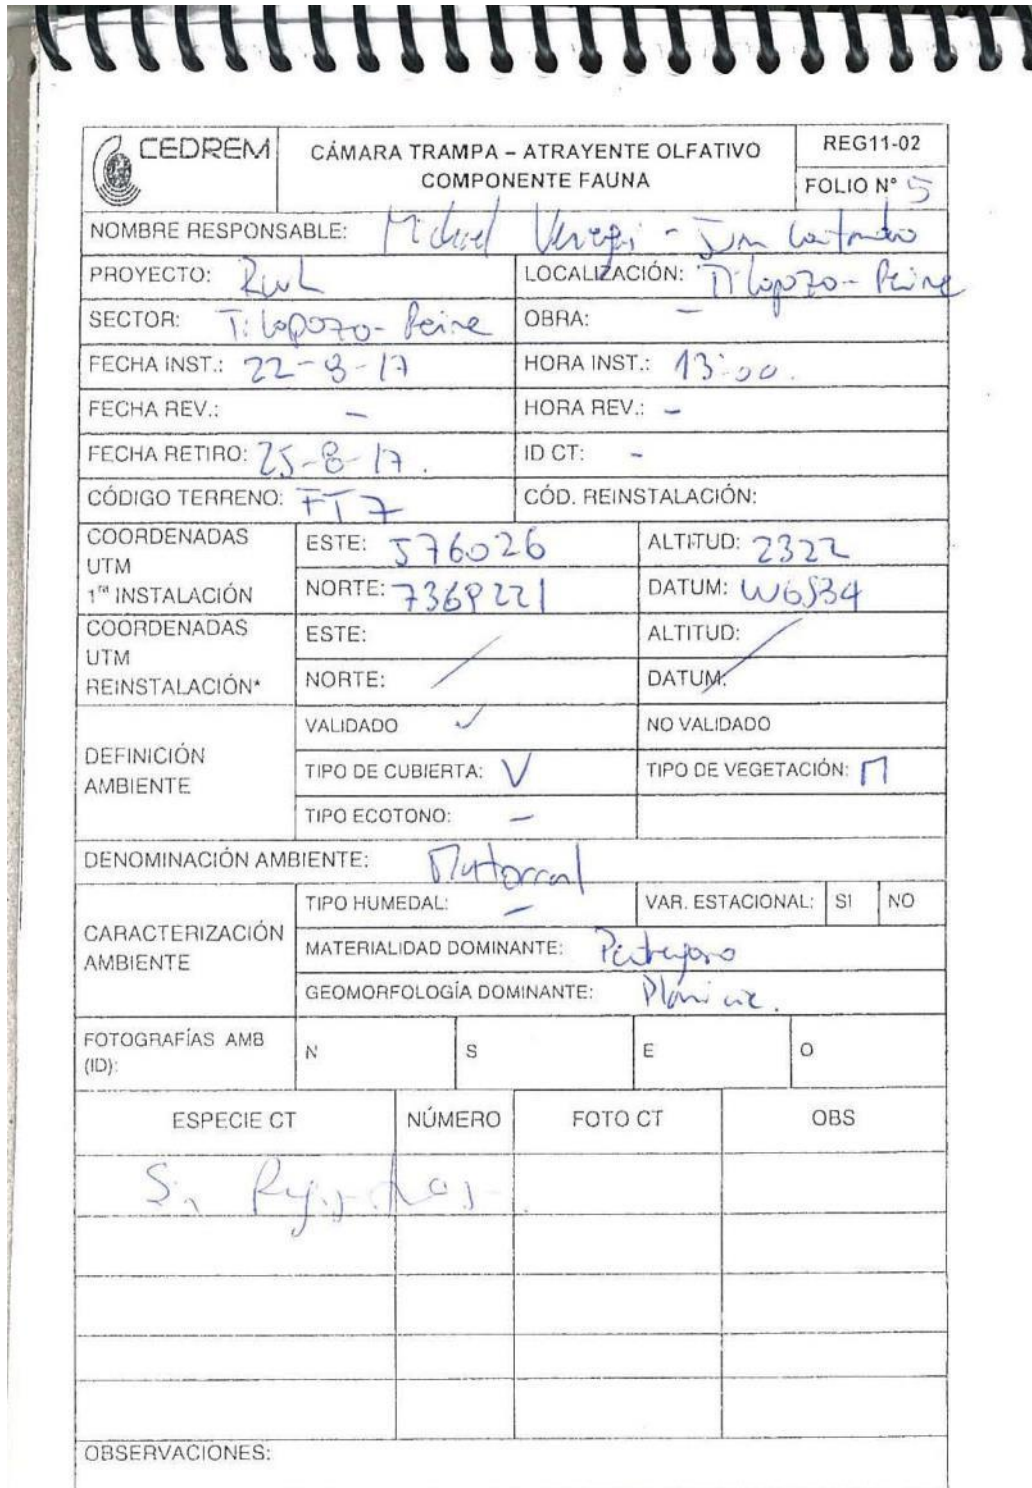 CEDREM
CÁMARA TRAMPA – ATRAYENTE OLFATIVO
COMPONENTE FAUNA
REG11-02
FOLIO N° 5
NOMBRE RESPONSABLE: Michael
PROYECTO:
LOCALIZACIÓN: Tilopozo - Peine
SECTOR: Tilopozo - Peine
OBRA: -
FECHA INST.: 22-8-17
HORA INST.: 13:00.
FECHA REV.: -
HORA REV.: -
FECHA RETIRO: 25-8-17.
ID CT: -
CÓDIGO TERRENO: FT7
CÓD. REINSTALACIÓN:
COORDENADAS
UTM
1ra INSTALACIÓN
ESTE: 576026
ALTITUD: 2322
NORTE:
DATUM:
COORDENADAS
UTM
REINSTALACIÓN*
ESTE:
ALTITUD:
NORTE:
DATUM:
DEFINICIÓN
AMBIENTE
VALIDADO ✓
NO VALIDADO
TIPO DE CUBIERTA: V
TIPO DE VEGETACIÓN:
TIPO ECOTONO: -
DENOMINACIÓN AMBIENTE: Matorral
CARACTERIZACIÓN
AMBIENTE
TIPO HUMEDAL: -
VAR. ESTACIONAL: SI NO
MATERIALIDAD DOMINANTE:
GEOMORFOLOGÍA DOMINANTE: Planicie.
FOTOGRAFÍAS AMB
(ID):
N S E O
ESPECIE CT NÚMERO FOTO CT OBS
Sin
OBSERVACIONES: